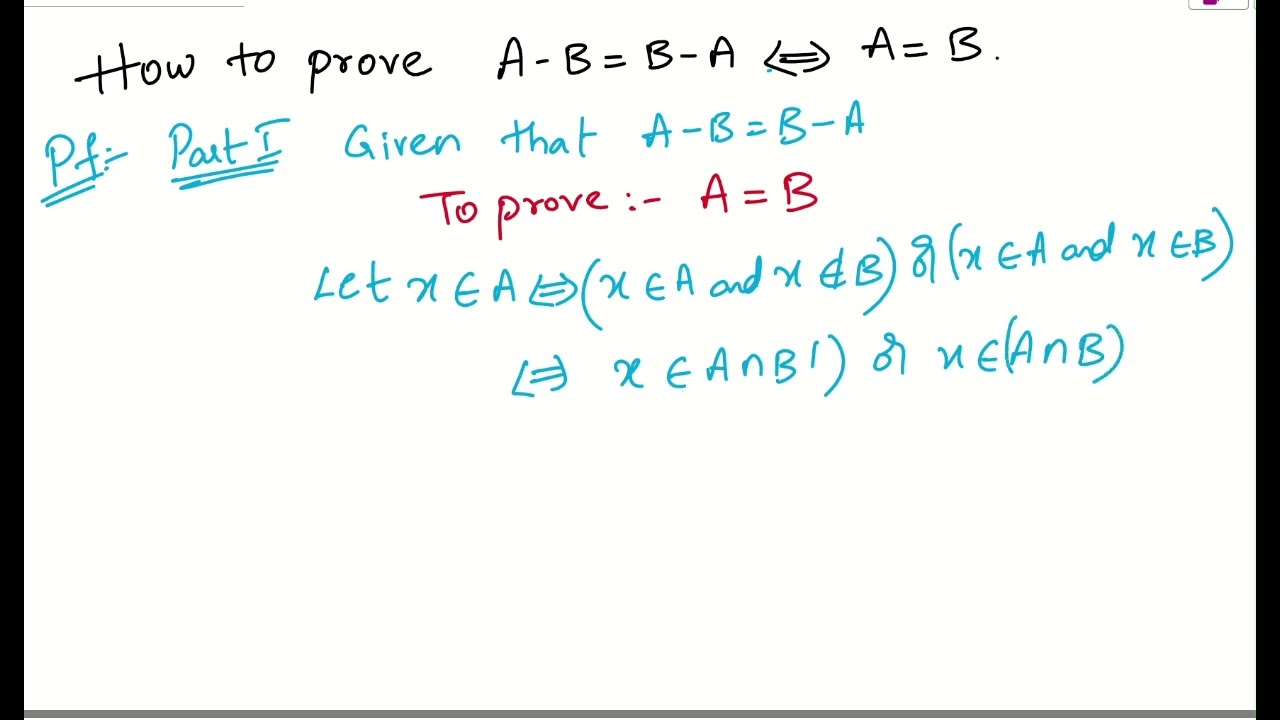 How to prove A - B = B - A ⇔ A = B.
Pf:- Part I Given that A - B = B - A
To prove :- A = B
Let x ∈ A ⇔ (x ∈ A and x ∉ B) or (x ∈ A and x ∈ B)
⇔ x ∈ A ∩ B') or x ∈ (A ∩ B)